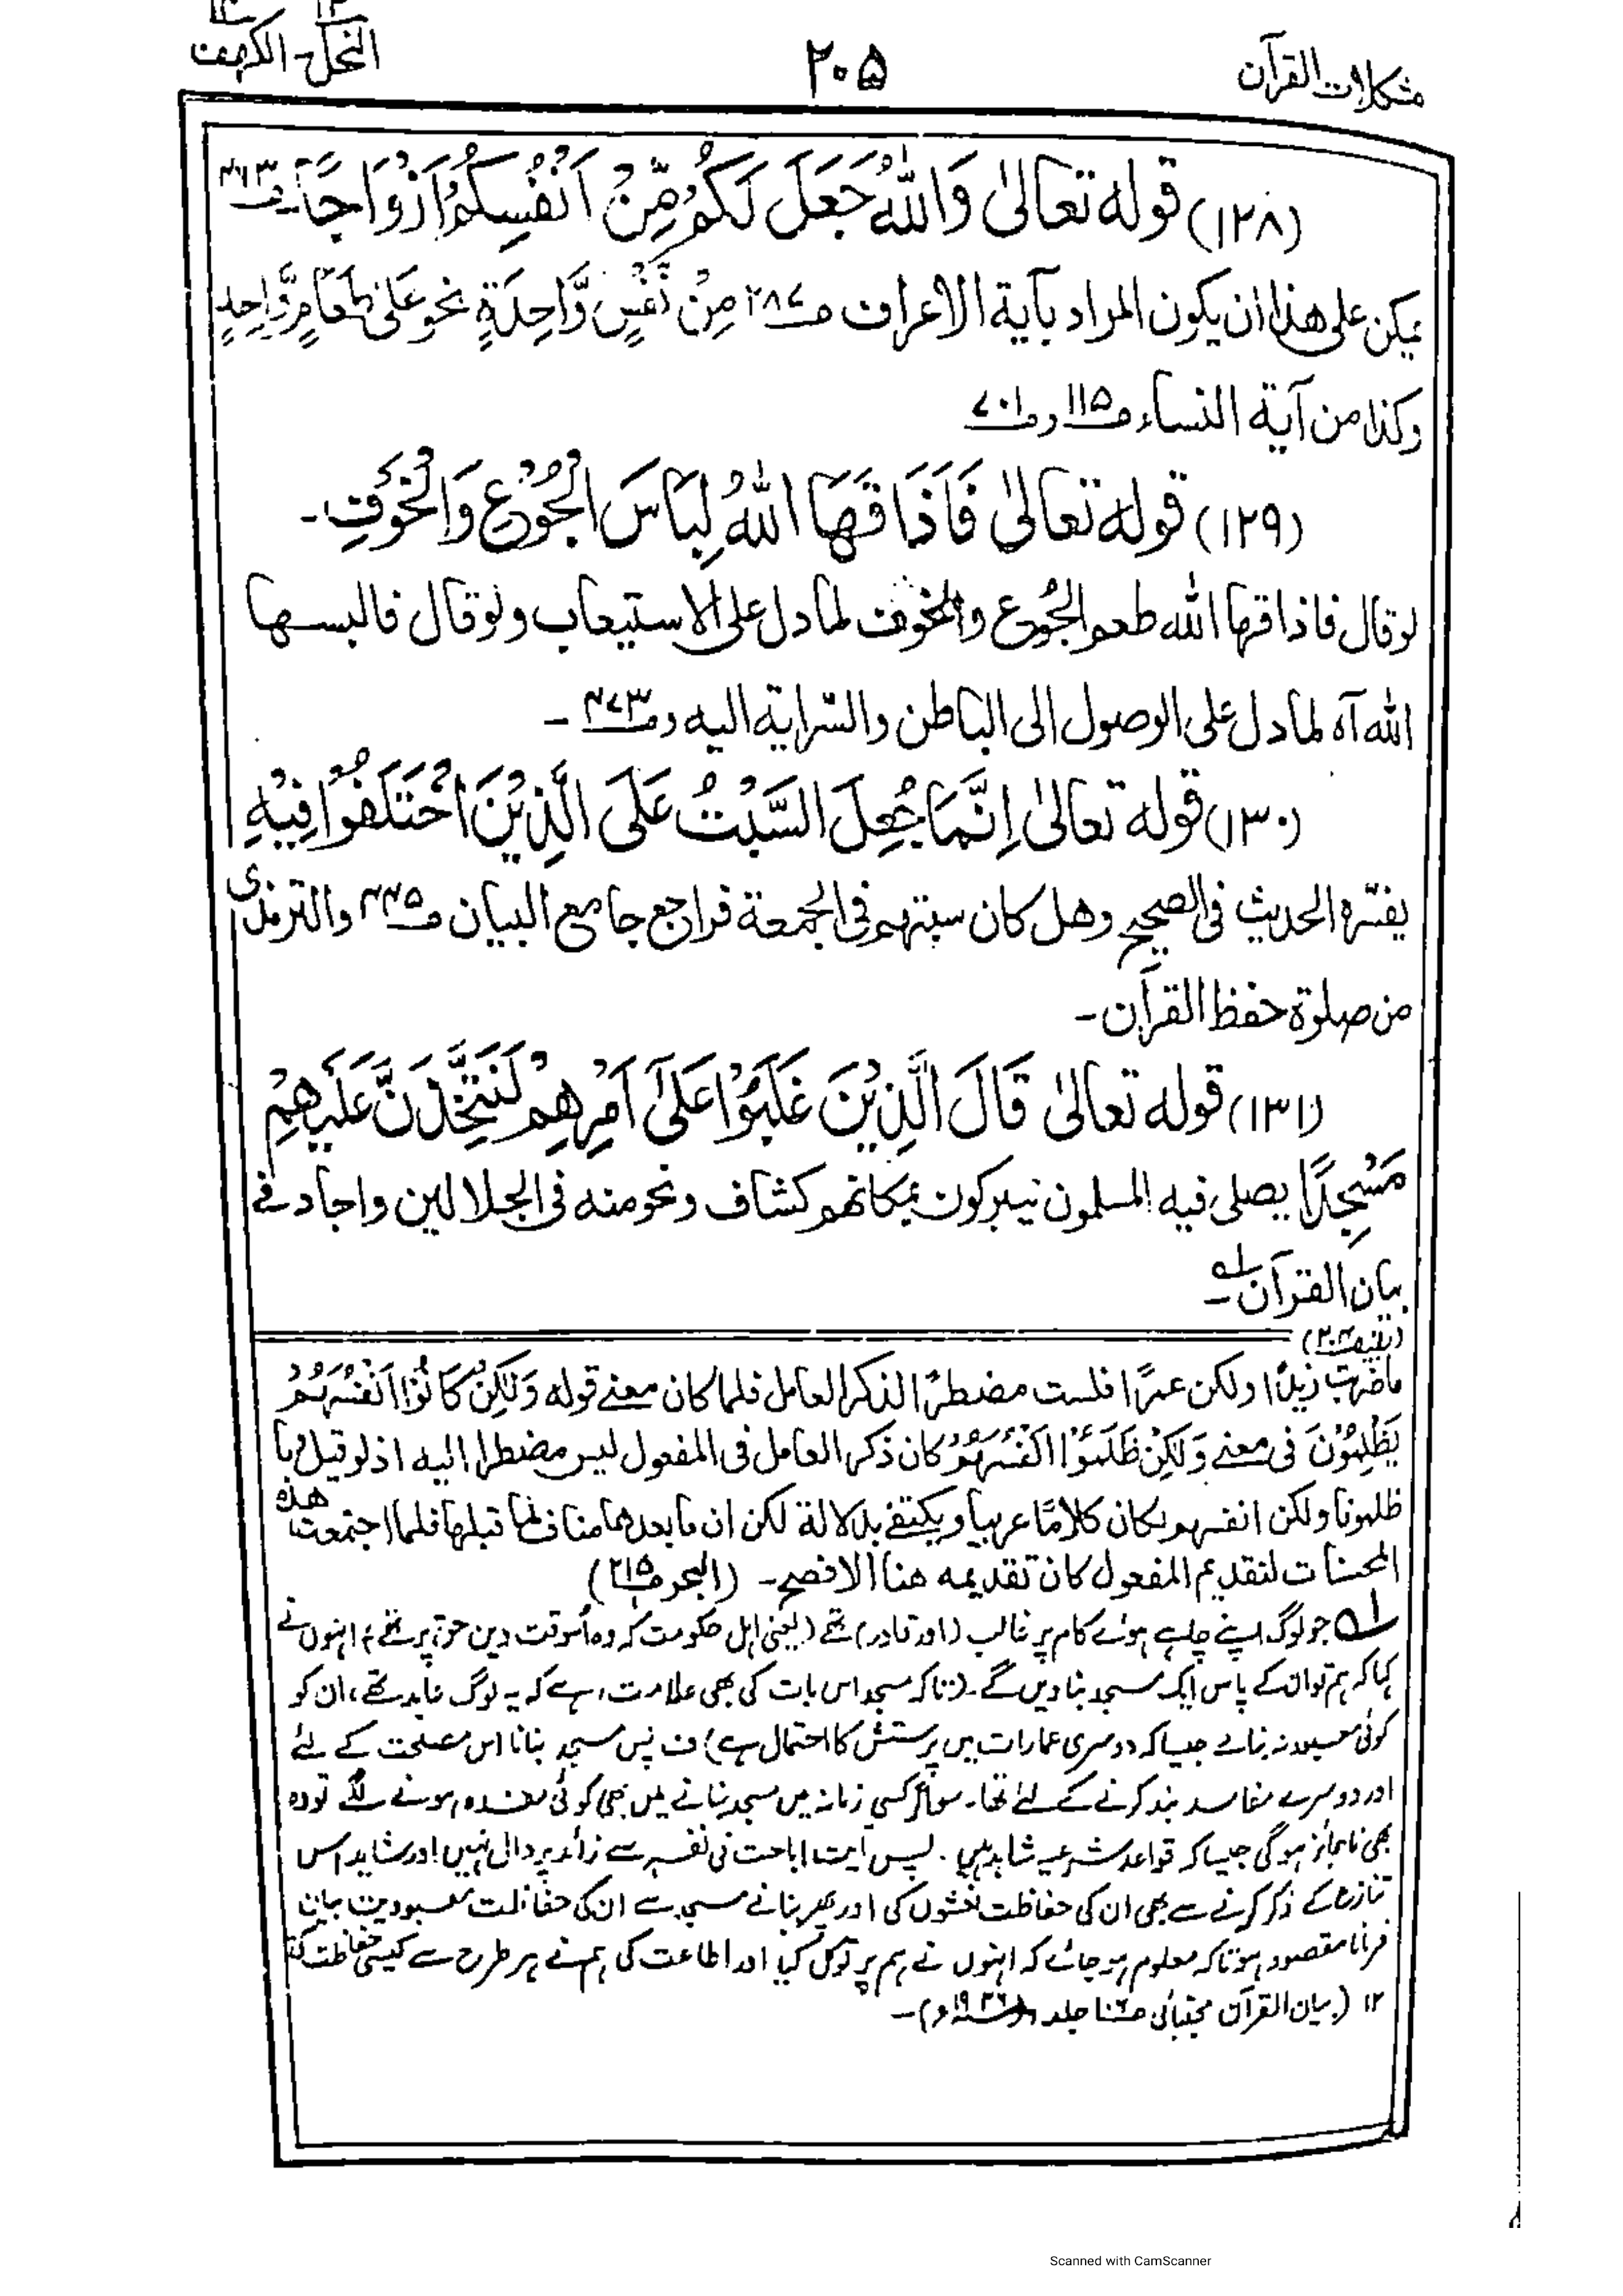 مشكلات القرآن
۲۰۵
النحل - الكهف
(۱۲۸) قوله تعالیٰ وَاللّٰهُ جَعَلَ لَكُمْ مِّنْ اَنْفُسِكُمْ اَزْوَاجًا۔
يمكن على هذا ان يكون المراد بآية الاعراف صـ٢٨٧ مِنْ نَّفْسٍ وَّاحِدَةٍ نحو عَلىٰ طَعَامٍ وَّاحِدٍ
وكذا من آية النساء صـ١١٥ و صـ٧٠١
(۱۲۹) قوله تعالیٰ فَاَذَاقَهَا اللّٰهُ لِبَاسَ الْجُوْعِ وَالْخَوْفِ۔
لو قال فاذاقها الله طعم الجُوع والخوف لما دل على الاستيعاب ولو قال فالبسها
الله آه لما دل على الوصول الى الباطن والسّراية اليه و صـ٤٧٣ ۔
(۱۳۰) قوله تعالیٰ اِنَّمَا جُعِلَ السَّبْتُ عَلَى الَّذِيْنَ اخْتَلَفُوْا فِيْهِ
يفسّره الحديث فى الصحيح وهل كان سبتهم فى الجمعة فراجع جامع البيان صـ٢٣٥ والترمذى
من صلوة حفظ القرآن۔
(۱۳۱) قوله تعالیٰ قَالَ الَّذِيْنَ غَلَبُوْا عَلٰٓى اَمْرِهِمْ لَنَتَّخِذَنَّ عَلَيْهِمْ
مَسْجِدًا يصلى فيه المسلمون يتبركون بمكانهم كشاف ونحو منه فى الجلالين واجاد فى
بيان القرآن له ۔
(بقيه صـ٢٠٤)
ما ضربت زيدًا ولكن عمرًا فلست مضطرًا لذكر العامل فلما كان معنى قوله وَلٰكِنْ كَانُوْٓا اَنْفُسَهُمْ
يَظْلِمُوْنَ فى معنى وَلٰكِنْ ظَلَمُوْا اَنْفُسَهُمْ كان ذكر العامل فى المفعول ليس مضطرا اليه اذ لو قيل وما
ظلمونا ولكن انفسهم لكان كلامًا عربيا ويكتفى بدلالة لكن ان ما بعدها مناف لما قبلها فلما اجتمعت هذه
المحسنات لتقديم المفعول كان تقديمه هنا الافصح۔ (البحر صـ٢١٥)
له جو لوگ اپنے چاہے ہوئے کام پر غالب (اور قادر) تھے (یعنی اہل حکومت کہ وہ اُسوقت دین حق پر تھے) انہوں نے
کہا کہ ہم تو ان کے پاس ایک مسجد بنا دیں گے۔ (تاکہ مسجد اس بات کی بھی علامت رہے کہ یہ لوگ عابد تھے، ان کو
کوئی معبود نہ بنا لے جیسا کہ دوسری عمارات میں پرستش کا احتمال ہے) ف پس مسجد بنانا اس مصلحت کے لئے
اور دوسرے مفاسد بند کرنے کے لئے تھا۔ سو اگر کسی زمانہ میں مسجد بنانے میں بھی کوئی مفسدہ ہونے لگے تو وہ
بھی ناجائز ہوگی جیسا کہ قواعد شرعیہ شاہد ہیں۔ پس آیت اباحت فی نفسہ سے زائد پر دال نہیں اور شاید اس
تنازع کے ذکر کرنے سے بھی ان کی حفاظت نعشوں کی اور پھر بنانے مسجد سے ان کی حفاظت معبودیت بیان
فرمانا مقصود ہو تاکہ معلوم ہو جائے کہ انہوں نے ہم پر توکل کیا اور اطاعت کی ہم نے ہر طرح سے کیسی حفاظت کی
۱۲ (بیان القرآن مجتبائی صـ١٠٦ جلد
Scanned with CamScanner